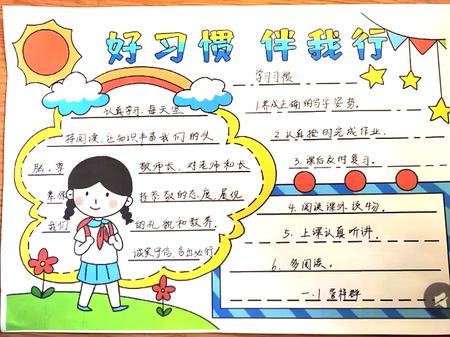 好习惯 伴我行
认真学习,每天坚
持阅读,让知识丰富我们的头
脑,尊敬师长,对老师和长
辈保持恭敬的态度,展现
我们的礼貌和教养。
诚实守信,言出必行
学习习惯
1.养成正确的写字姿势。
2.认真按时完成作业。
3.课后及时复习。
4.阅读课外读物。
5.上课认真听讲.
6.多阅读。
一.1